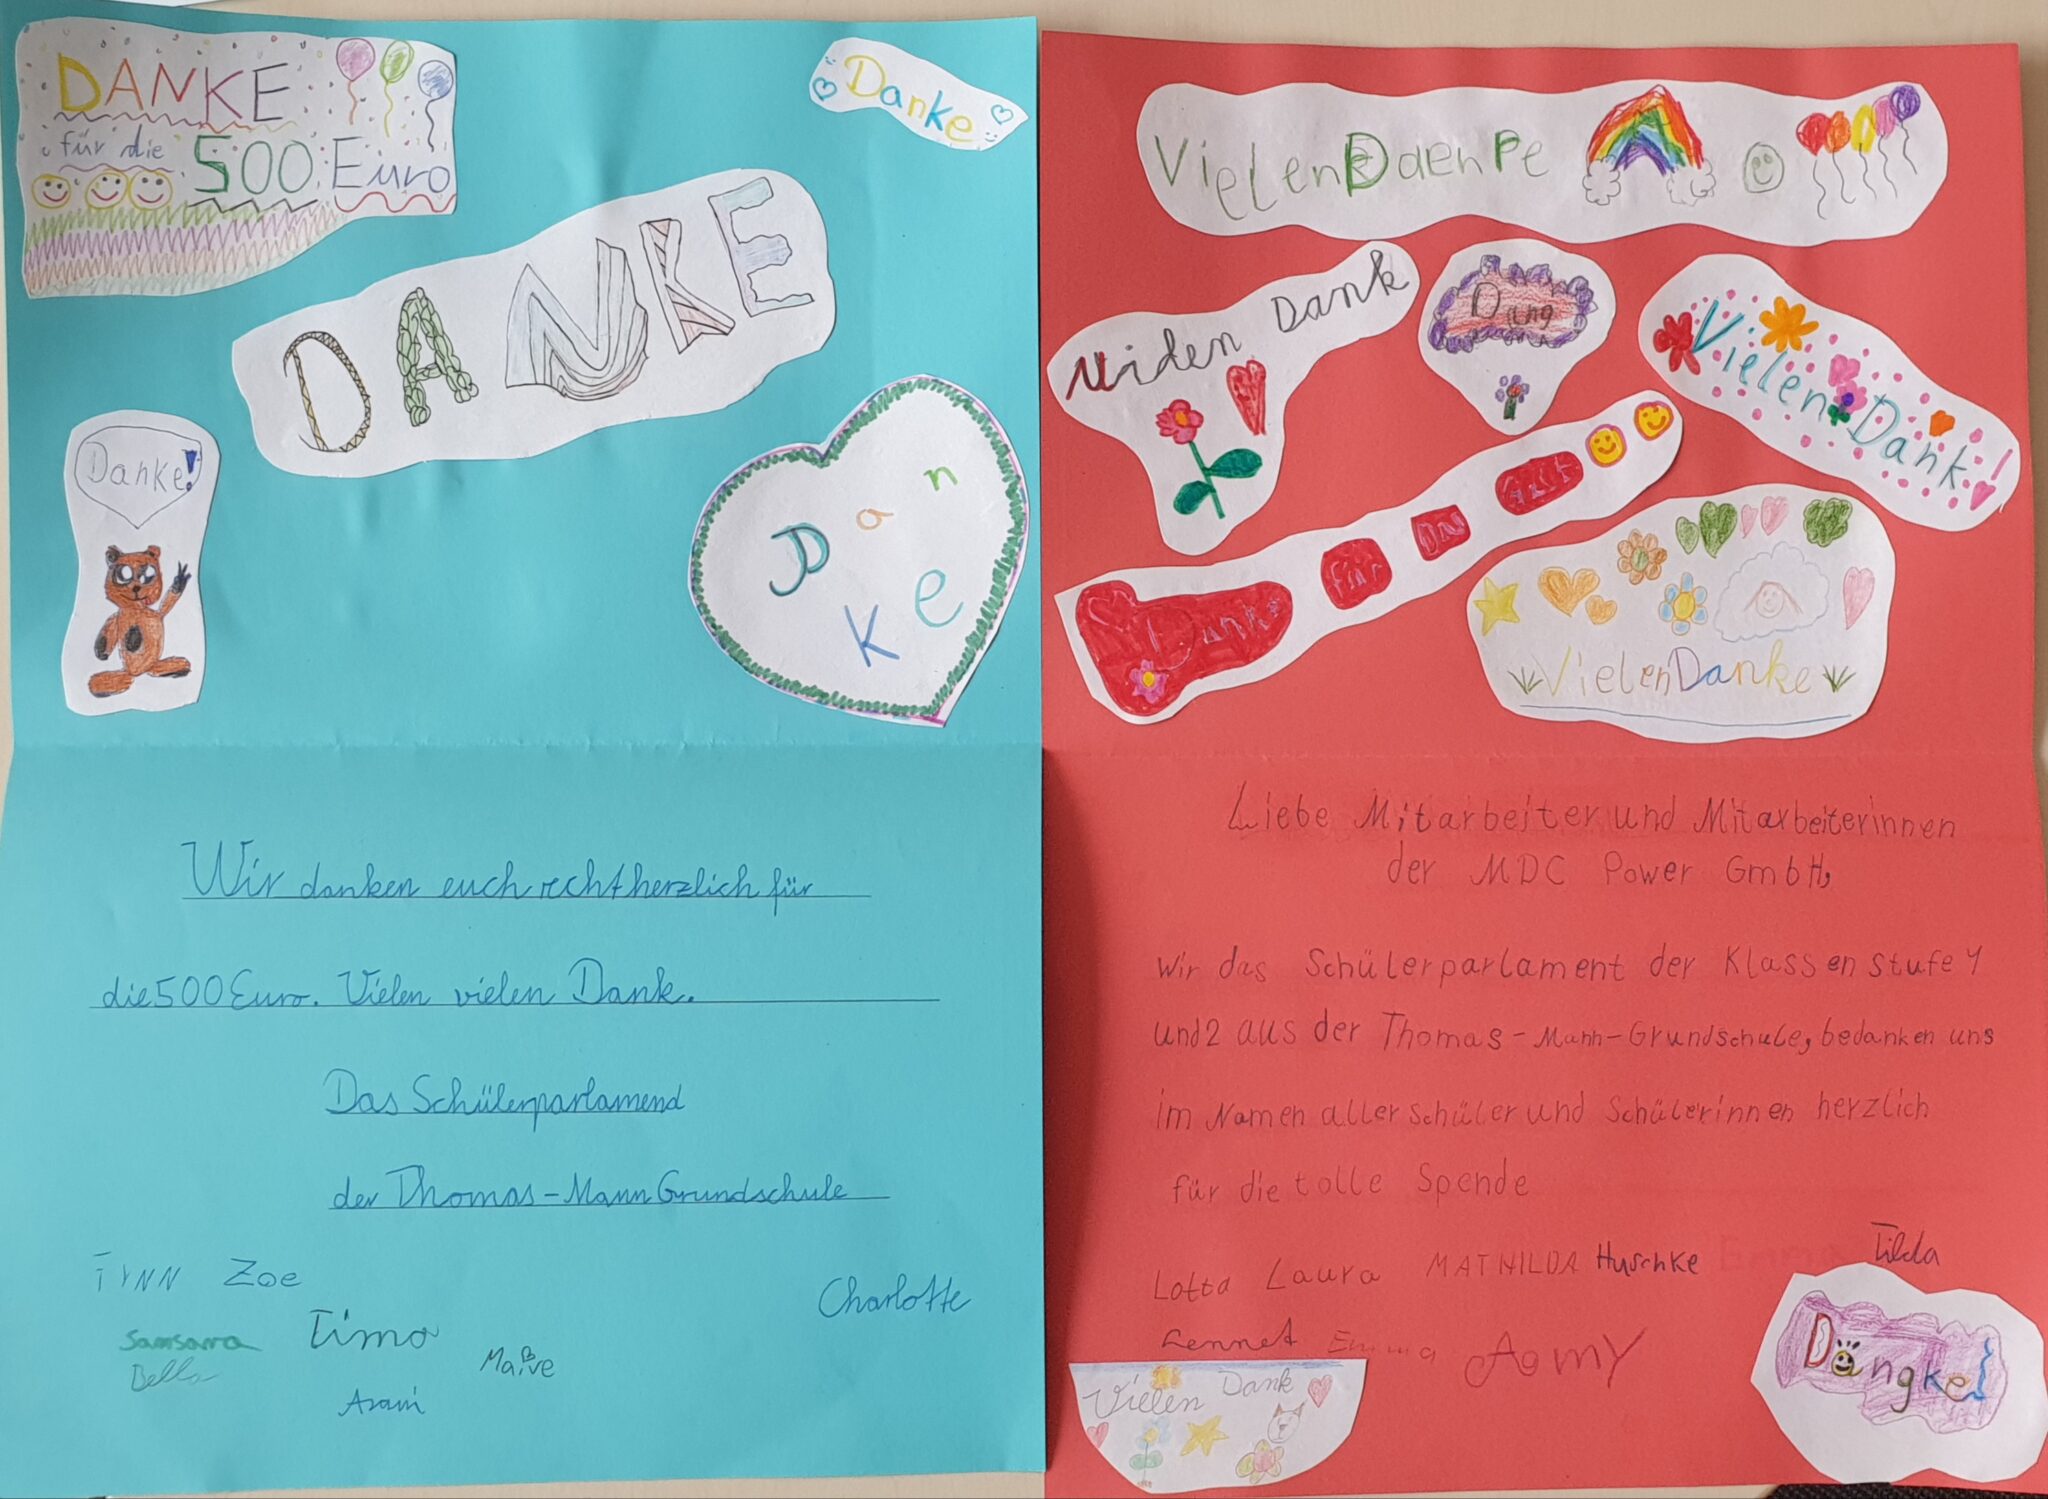 DANKE
für die 500 Euro
Danke
DANKE
Danke!
Danke
Wir danken euch recht herzlich für
die 500 Euro. Vielen vielen Dank.
Das Schülerparlamend
der Thomas-Mann Grundschule
Zoe
Charlotte
Samsara
Timo
Bella
Vielen
Vielen Dank
Dang
Vielen Dank!
Danke für Geld
Vielen Danke
Liebe Mitarbeiter und Mitarbeiterinnen
der MDC Power GmbH,
wir das Schülerparlament der Klassenstufe 1
und 2 aus der Thomas-Mann-Grundschule, bedanken uns
im Namen aller Schüler und Schülerinnen herzlich
für die tolle Spende
Lotta Laura MATHILDA Huschke Emma Tilda
Lennet Emma
Vielen Dank
Dangke!